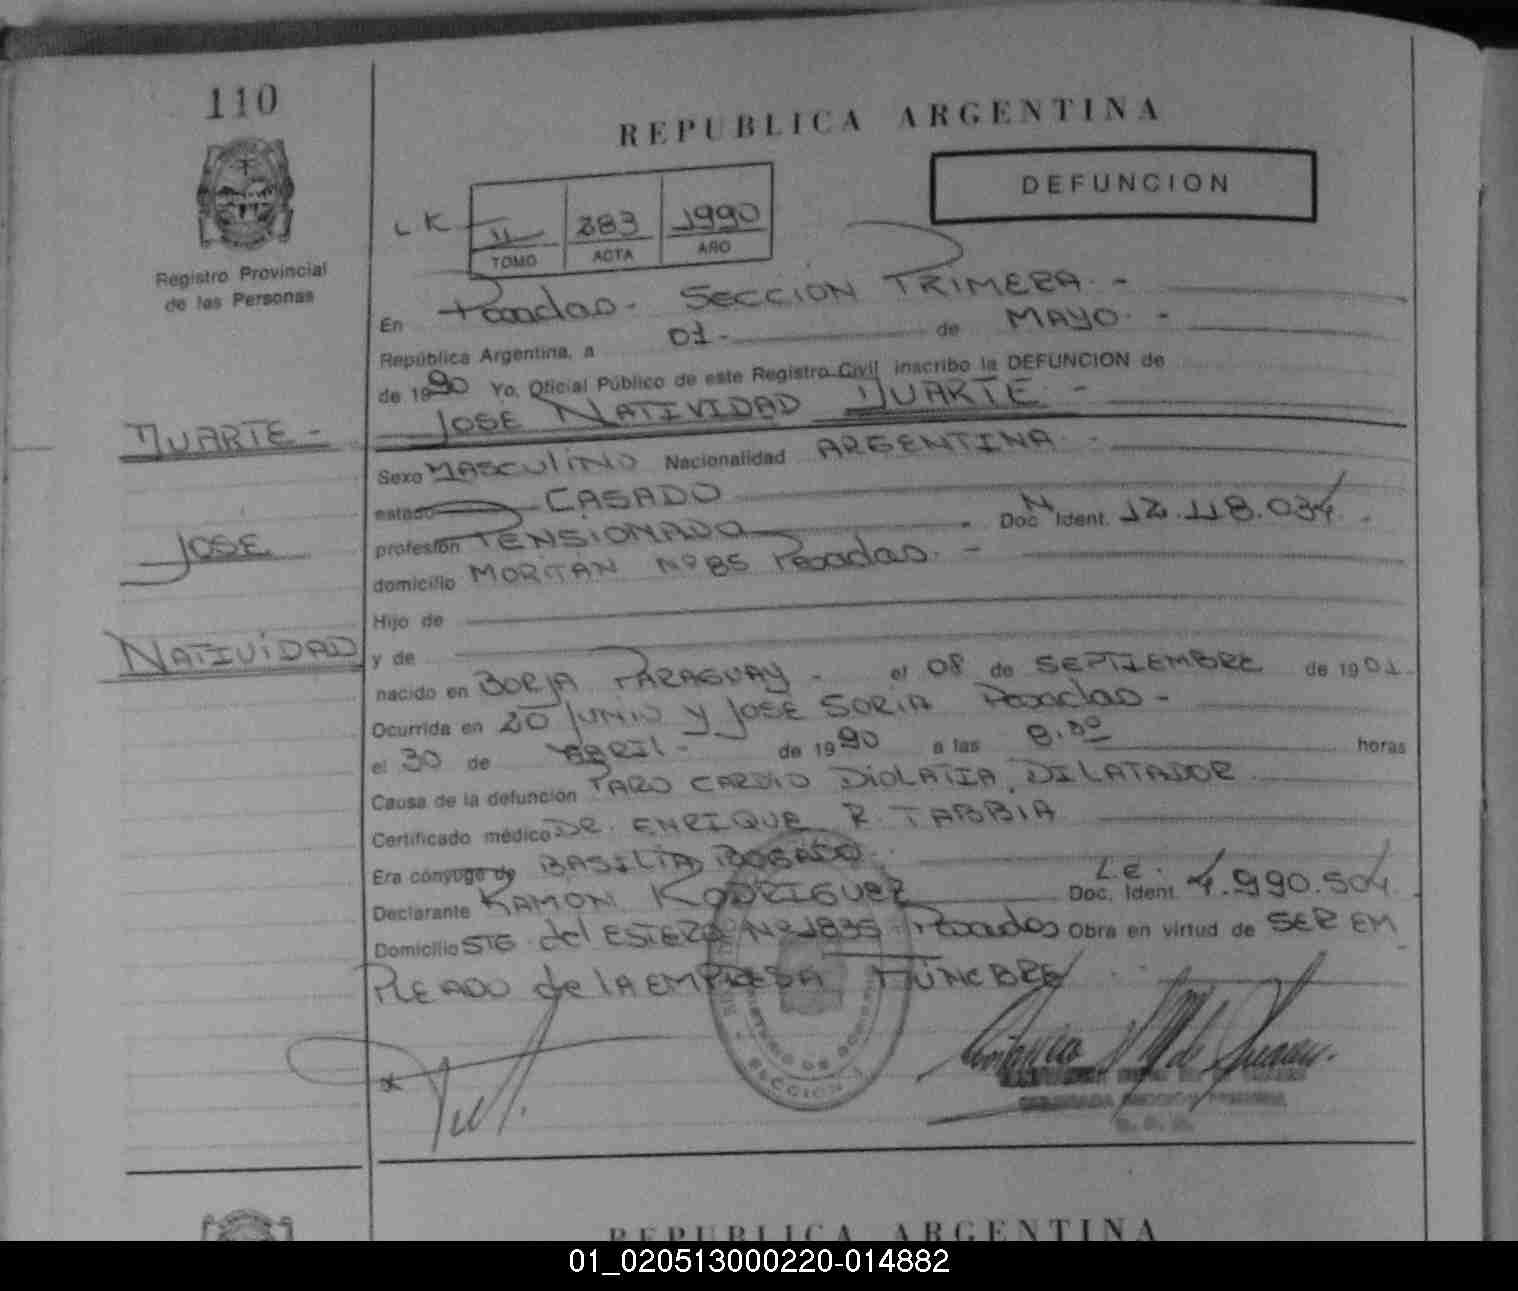 110
REPUBLICA ARGENTINA
DEFUNCION
LK II 283 1990
TOMO ACTA AÑO
Registro Provincial
de las Personas
En Posadas - SECCION PRIMERA. -
República Argentina, a 01 - de MAYO. -
de 1990 Yo, Oficial Público de este Registro Civil inscribo la DEFUNCION de
DUARTE - JOSE NATIVIDAD DUARTE. -
Sexo MASCULINO Nacionalidad ARGENTINA. -
estado CASADO
JOSE
profesión PENSIONADO. Doc. N Ident. 12.118.034.
domicilio Nº 85 Posadas. -
Hijo de
NATIVIDAD
y de
nacido en BORJA PARAGUAY - el 08 de SEPTIEMBRE de 1901.
Ocurrida en 20 JUNIO y JOSE SORIA Posadas -
el 30 de ABRIL - de 1990 a las 8.30 horas
Causa de la defunción PARO CARDIO DILATADOR
Certificado médico DR. ENRIQUE R. TABBIA
Era cónyuge de BASILIA BOGADO.
Declarante RAMON RODRIGUEZ L.E. Doc. Ident. 4.990.504.
Domicilio STG. del ESTERO Nº 1835 Posadas Obra en virtud de SER EM
PLEADO de la EMPRESA FUNEBRE
MINISTERIO DE GOBIERNO
SECCION 1
REPUBLICA ARGENTINA
01_020513000220-014882